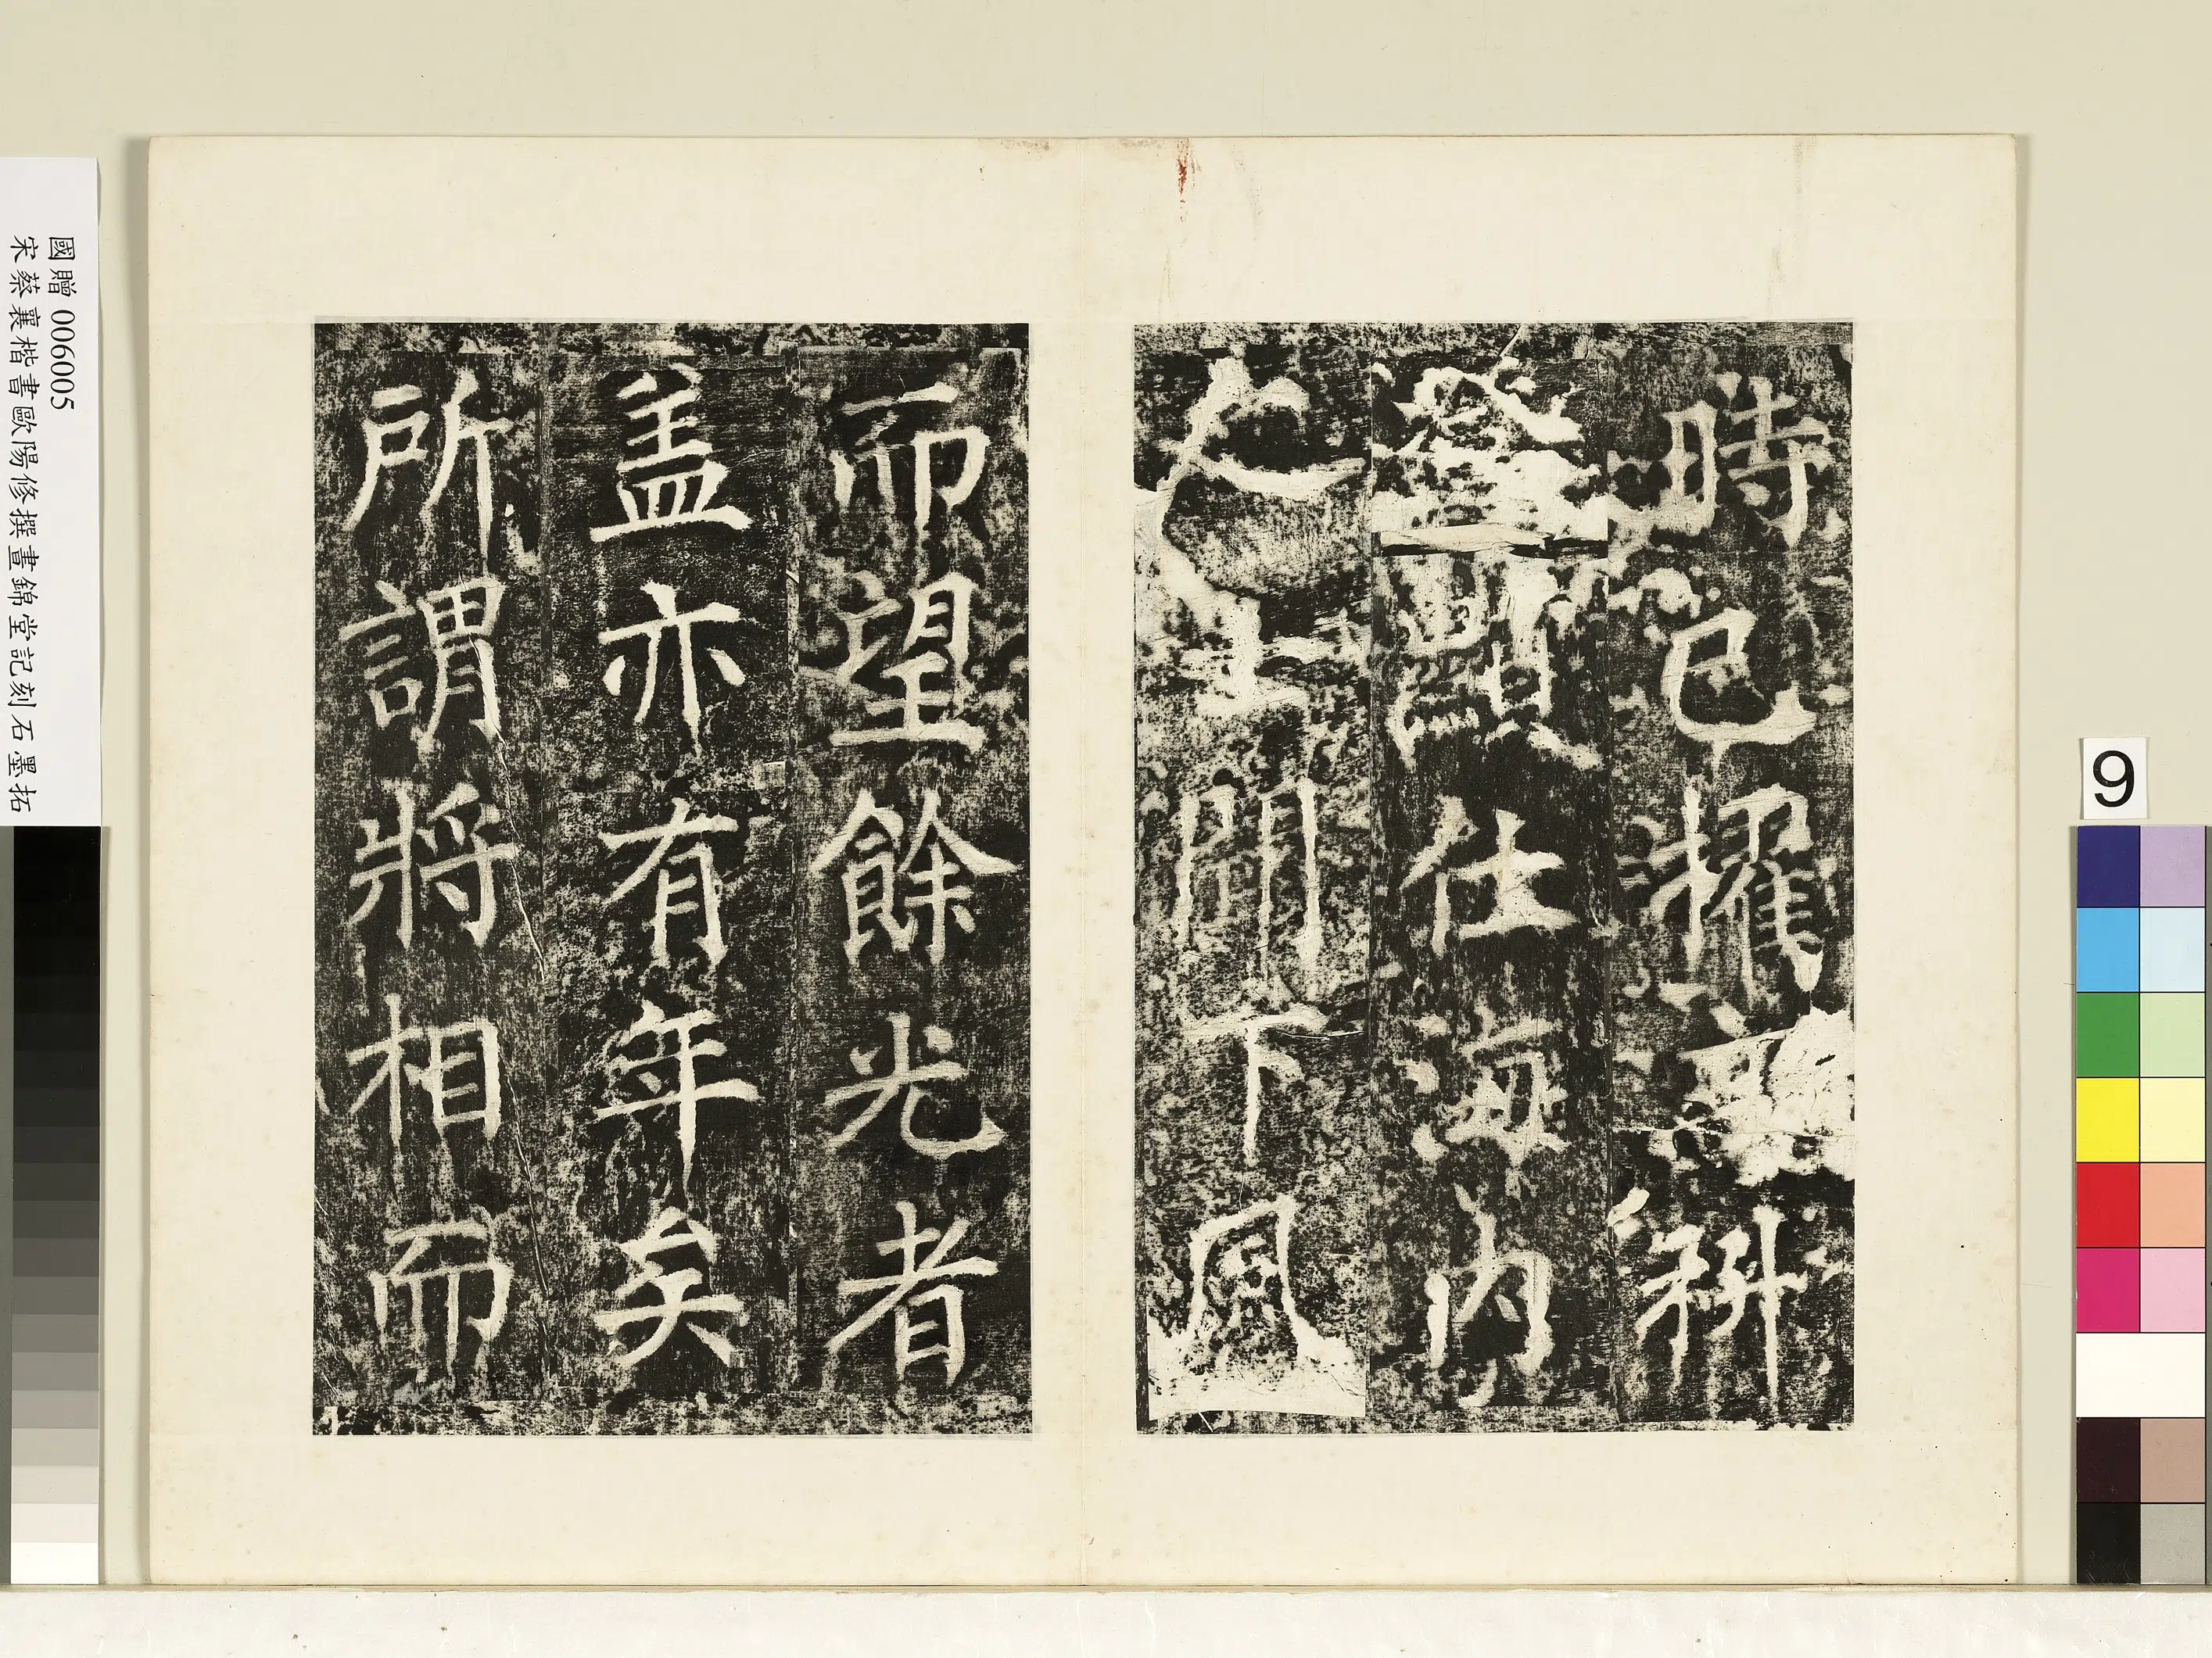 時已擢高科
登顯仕海內
之士聞下風
而望餘光者
盖亦有年矣
所謂將相而
國贈 006005
宋蔡襄楷書歐陽修撰晝錦堂記刻石墨拓
9